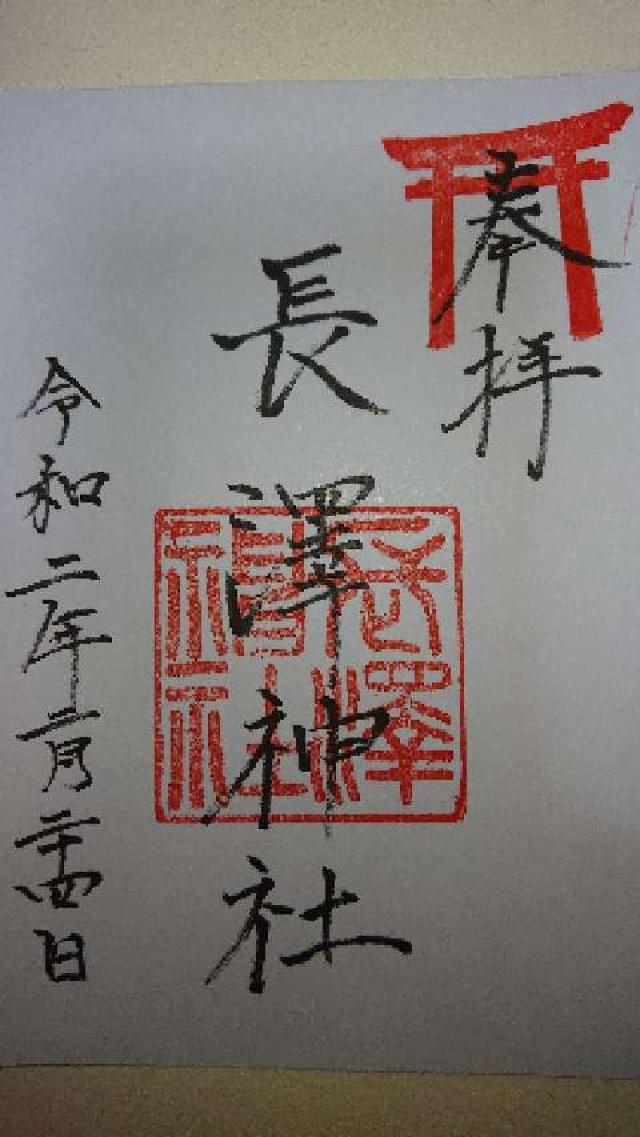 奉拝
長澤神社
長澤神社
令和二年二月二十四日